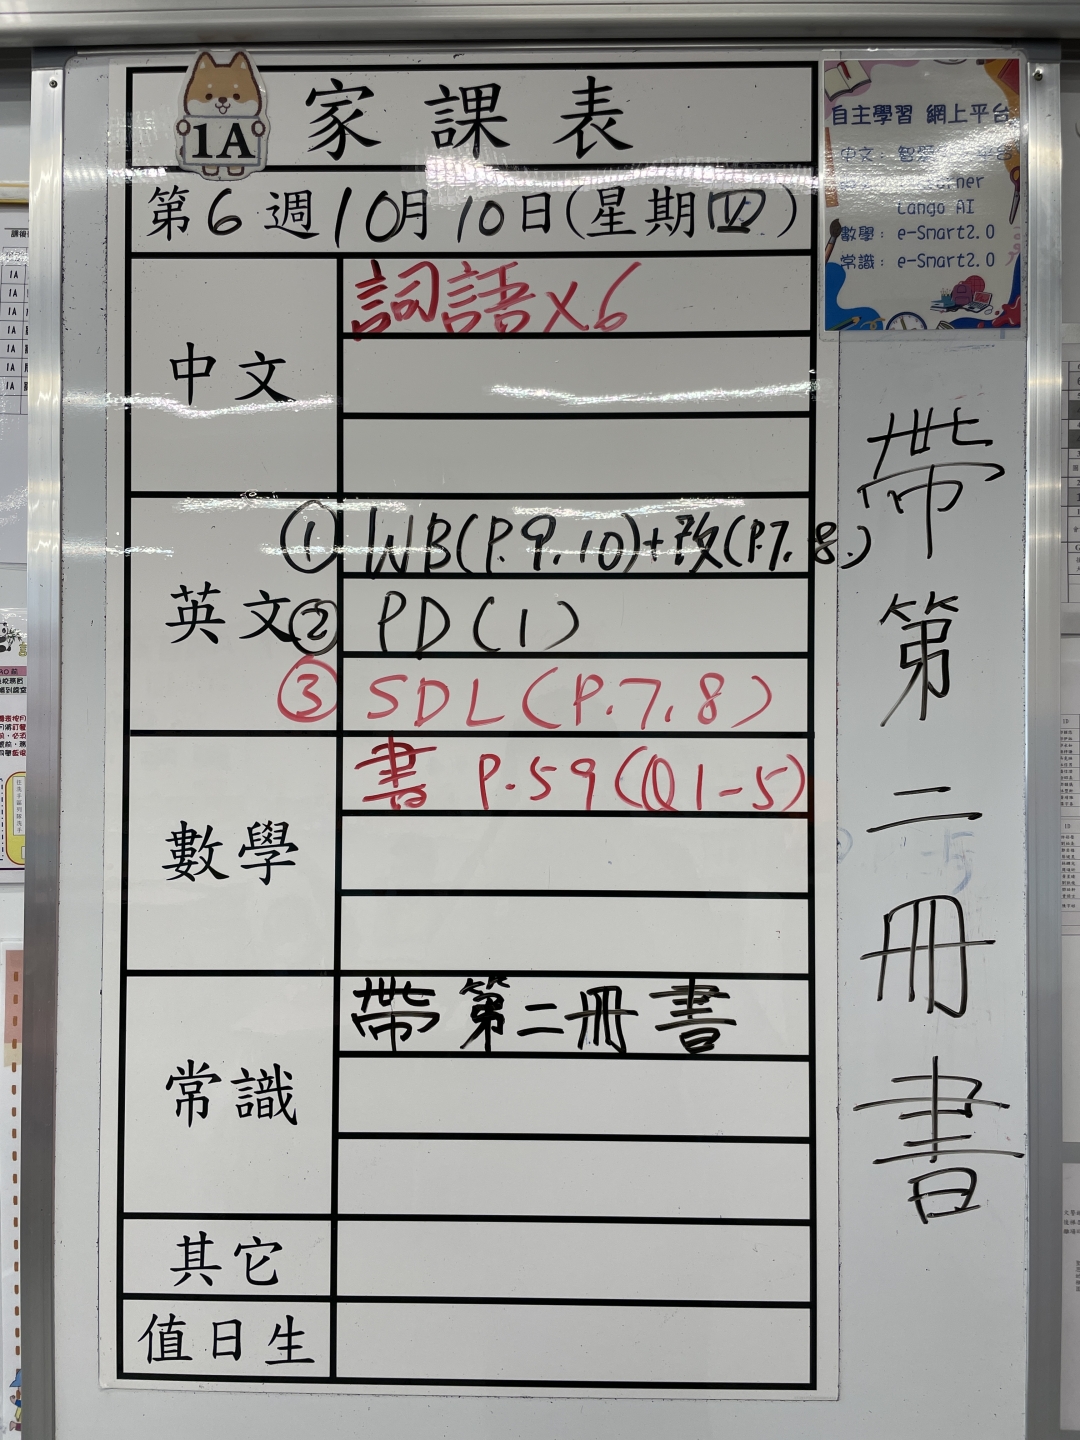 1A
家課表
第6週10月10日(星期四)
中文
詞語×6
英文
①WB(P.9.10)+改(P.7.8.)
②PD(1)
③SDL(P.7.8)
數學
書 P.59(Q1-5)
常識
帶第二冊書
其它
值日生
自主學習 網上平台
中文:
平台
Lango AI
數學: e-Smart2.0
常識: e-Smart2.0
帶第二冊書